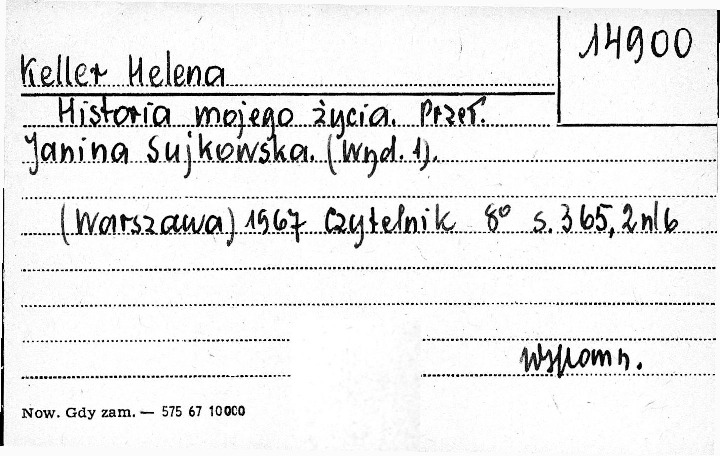 14900
Keller Helena
Historia mojego życia. Przeł.
Janina Sujkowska. (Wyd. 1).
(Warszawa) 1967 Czytelnik 8° s. 365, 2nlb
Wspomn.
Now. Gdy zam. — 575 67 10000